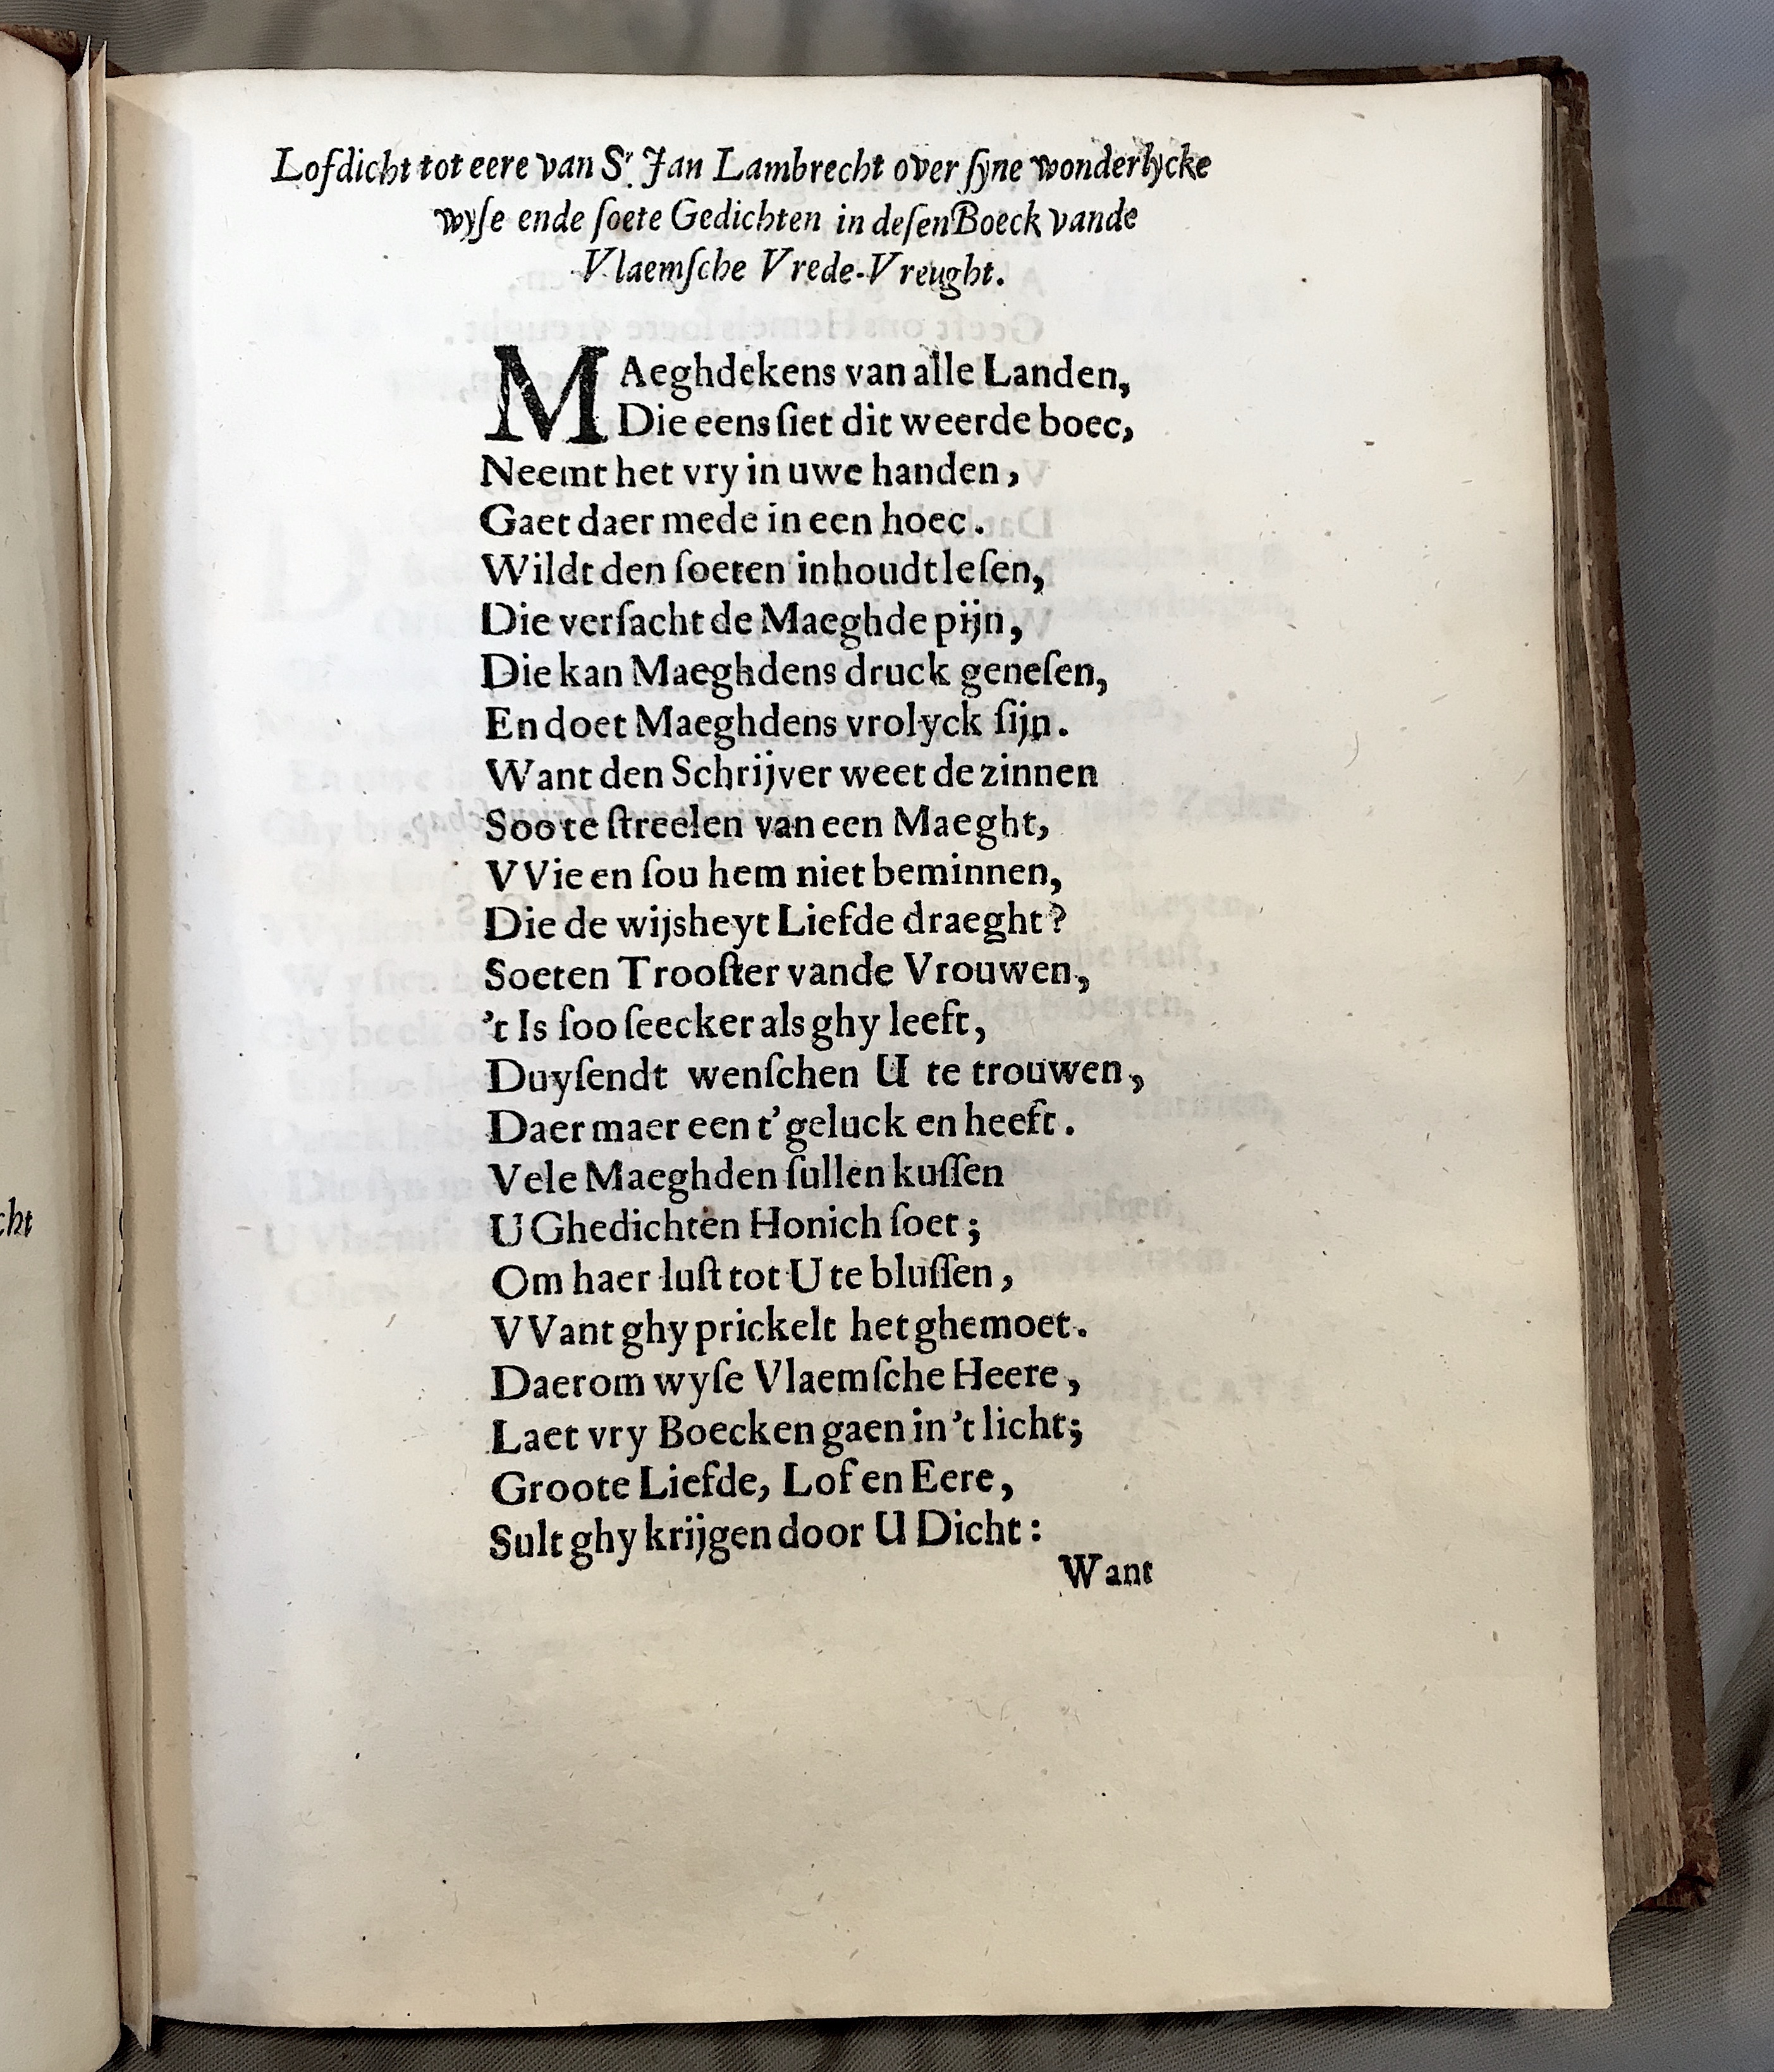 Lofdicht tot eere van Sr. Jan Lambrecht over ſyne wonderlycke
wyſe ende ſoete Gedichten in deſen Boeck vande
Vlaemſche Vrede-Vreught.
MAeghdekens van alle Landen,
Die eens ſiet dit weerde boec,
Neemt het vry in uwe handen,
Gaet daer mede in een hoec.
Wildt den ſoeten inhoudt leſen,
Die verſacht de Maeghde pijn,
Die kan Maeghdens druck geneſen,
En doet Maeghdens vrolyck ſijn.
Want den Schrijver weet de zinnen
Soo te ſtreelen van een Maeght,
VVie en ſou hem niet beminnen,
Die de wijsheyt Liefde draeght?
Soeten Trooſter vande Vrouwen,
't Is ſoo ſeecker als ghy leeft,
Duyſendt wenſchen U te trouwen,
Daer maer een t'geluck en heeft.
Vele Maeghden ſullen kuſſen
U Ghedichten Honich ſoet;
Om haer luſt tot U te bluſſen,
VVant ghy prickelt het ghemoet.
Daerom wyſe Vlaemſche Heere,
Laet vry Boecken gaen in 't licht;
Groote Liefde, Lof en Eere,
Sult ghy krijgen door U Dicht:
Want
cht